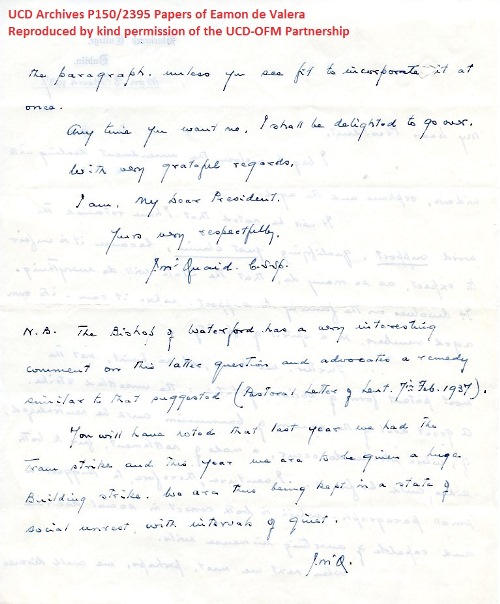 UCD Archives P150/2395 Papers of Eamon de Valera
Reproduced by kind permission of the UCD-OFM Partnership
the paragraph. unless you see fit to incorporate it at
once.
Any time you want me, I shall be delighted to go over.
With very grateful regards,
I am, My Dear President,
Yours very respectfully,
J. McQuaid. C.S.Sp.
N.B. The Bishop of Waterford has a very interesting
comment on this latter question and advocates a remedy
similar to that suggested (Pastoral Letter of Lent. 7th Feb. 1937).
You will have noted that last year we had the
Tram strike and this year we are to be given a huge
Building strike. We are thus being kept in a state of
social unrest, with intervals of quiet.
J. McQ.